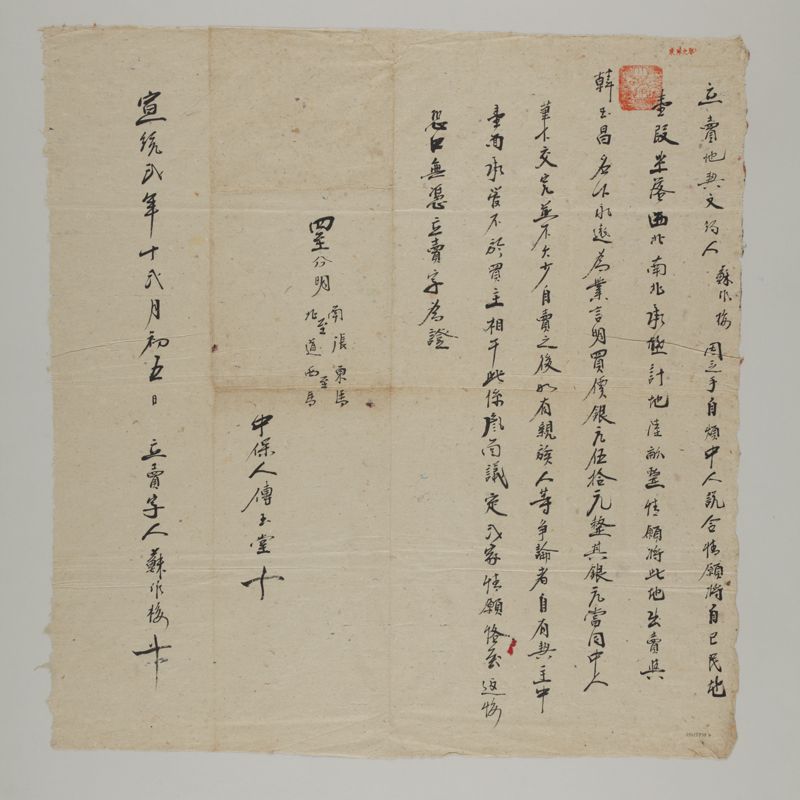 立賣地契文約人蘇作梅因乏手自煩中人說合情願將自己民地
壹段坐落西北南北承墾計地陸畝整情願將此地出賣與
韓玉昌名下永遠為業言明買價銀元伍拾元整其銀元當同中人
筆下交完並不欠少自賣之後如有親族人等爭論者自有契主中
壹面承管不於買主相干此係憑面議定式家情願恪無返悔
恐口無憑立賣字為證
四至分明 南張 東馬 北至道 西至馬
中保人傅玉堂十
宣統弍年十弍月初五日 立賣字人蘇作梅